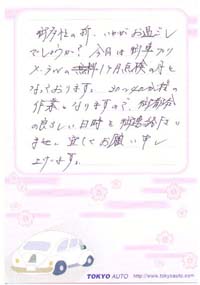 御多忙の折、いかがお過ごし
でしょうか?今月は御車
無料1ヶ月点検の月と
なっております。30〜40分程の
作業となりますので、御都合
の良ろしい日時を御連絡下さい
ませ。宜しくお願い申し
上げます。
TOKYO AUTO http://www.tokyoauto.com